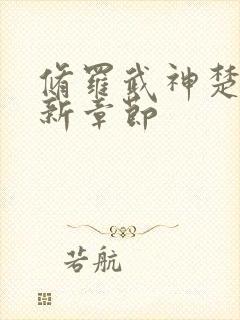 脩羅武神楚
新章節
若航